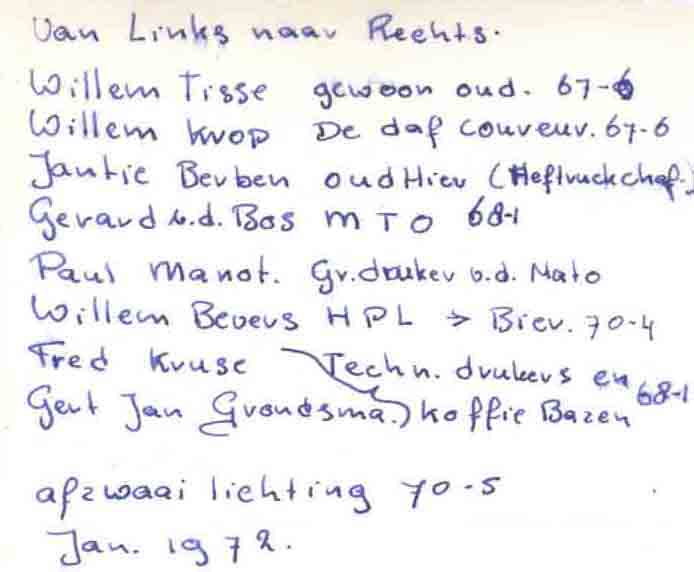 Van Links naar Rechts.
Willem Tisse gewoon oud. 67-6
Willem Knop De daf couveur. 67-6
Jantie Berben oud Hier (Heftruckchaf.)
Gerard v.d. Bos MTO 68-1
Paul Manot. Gr. drukker v.d. Nato
Willem Bevers HPL → Bier. 70-4
Fred Kruse Techn. drukers en
Gert Jan Grondsma.) koffie Bazen 68-1
afzwaai lichting 70-5
Jan. 1972.